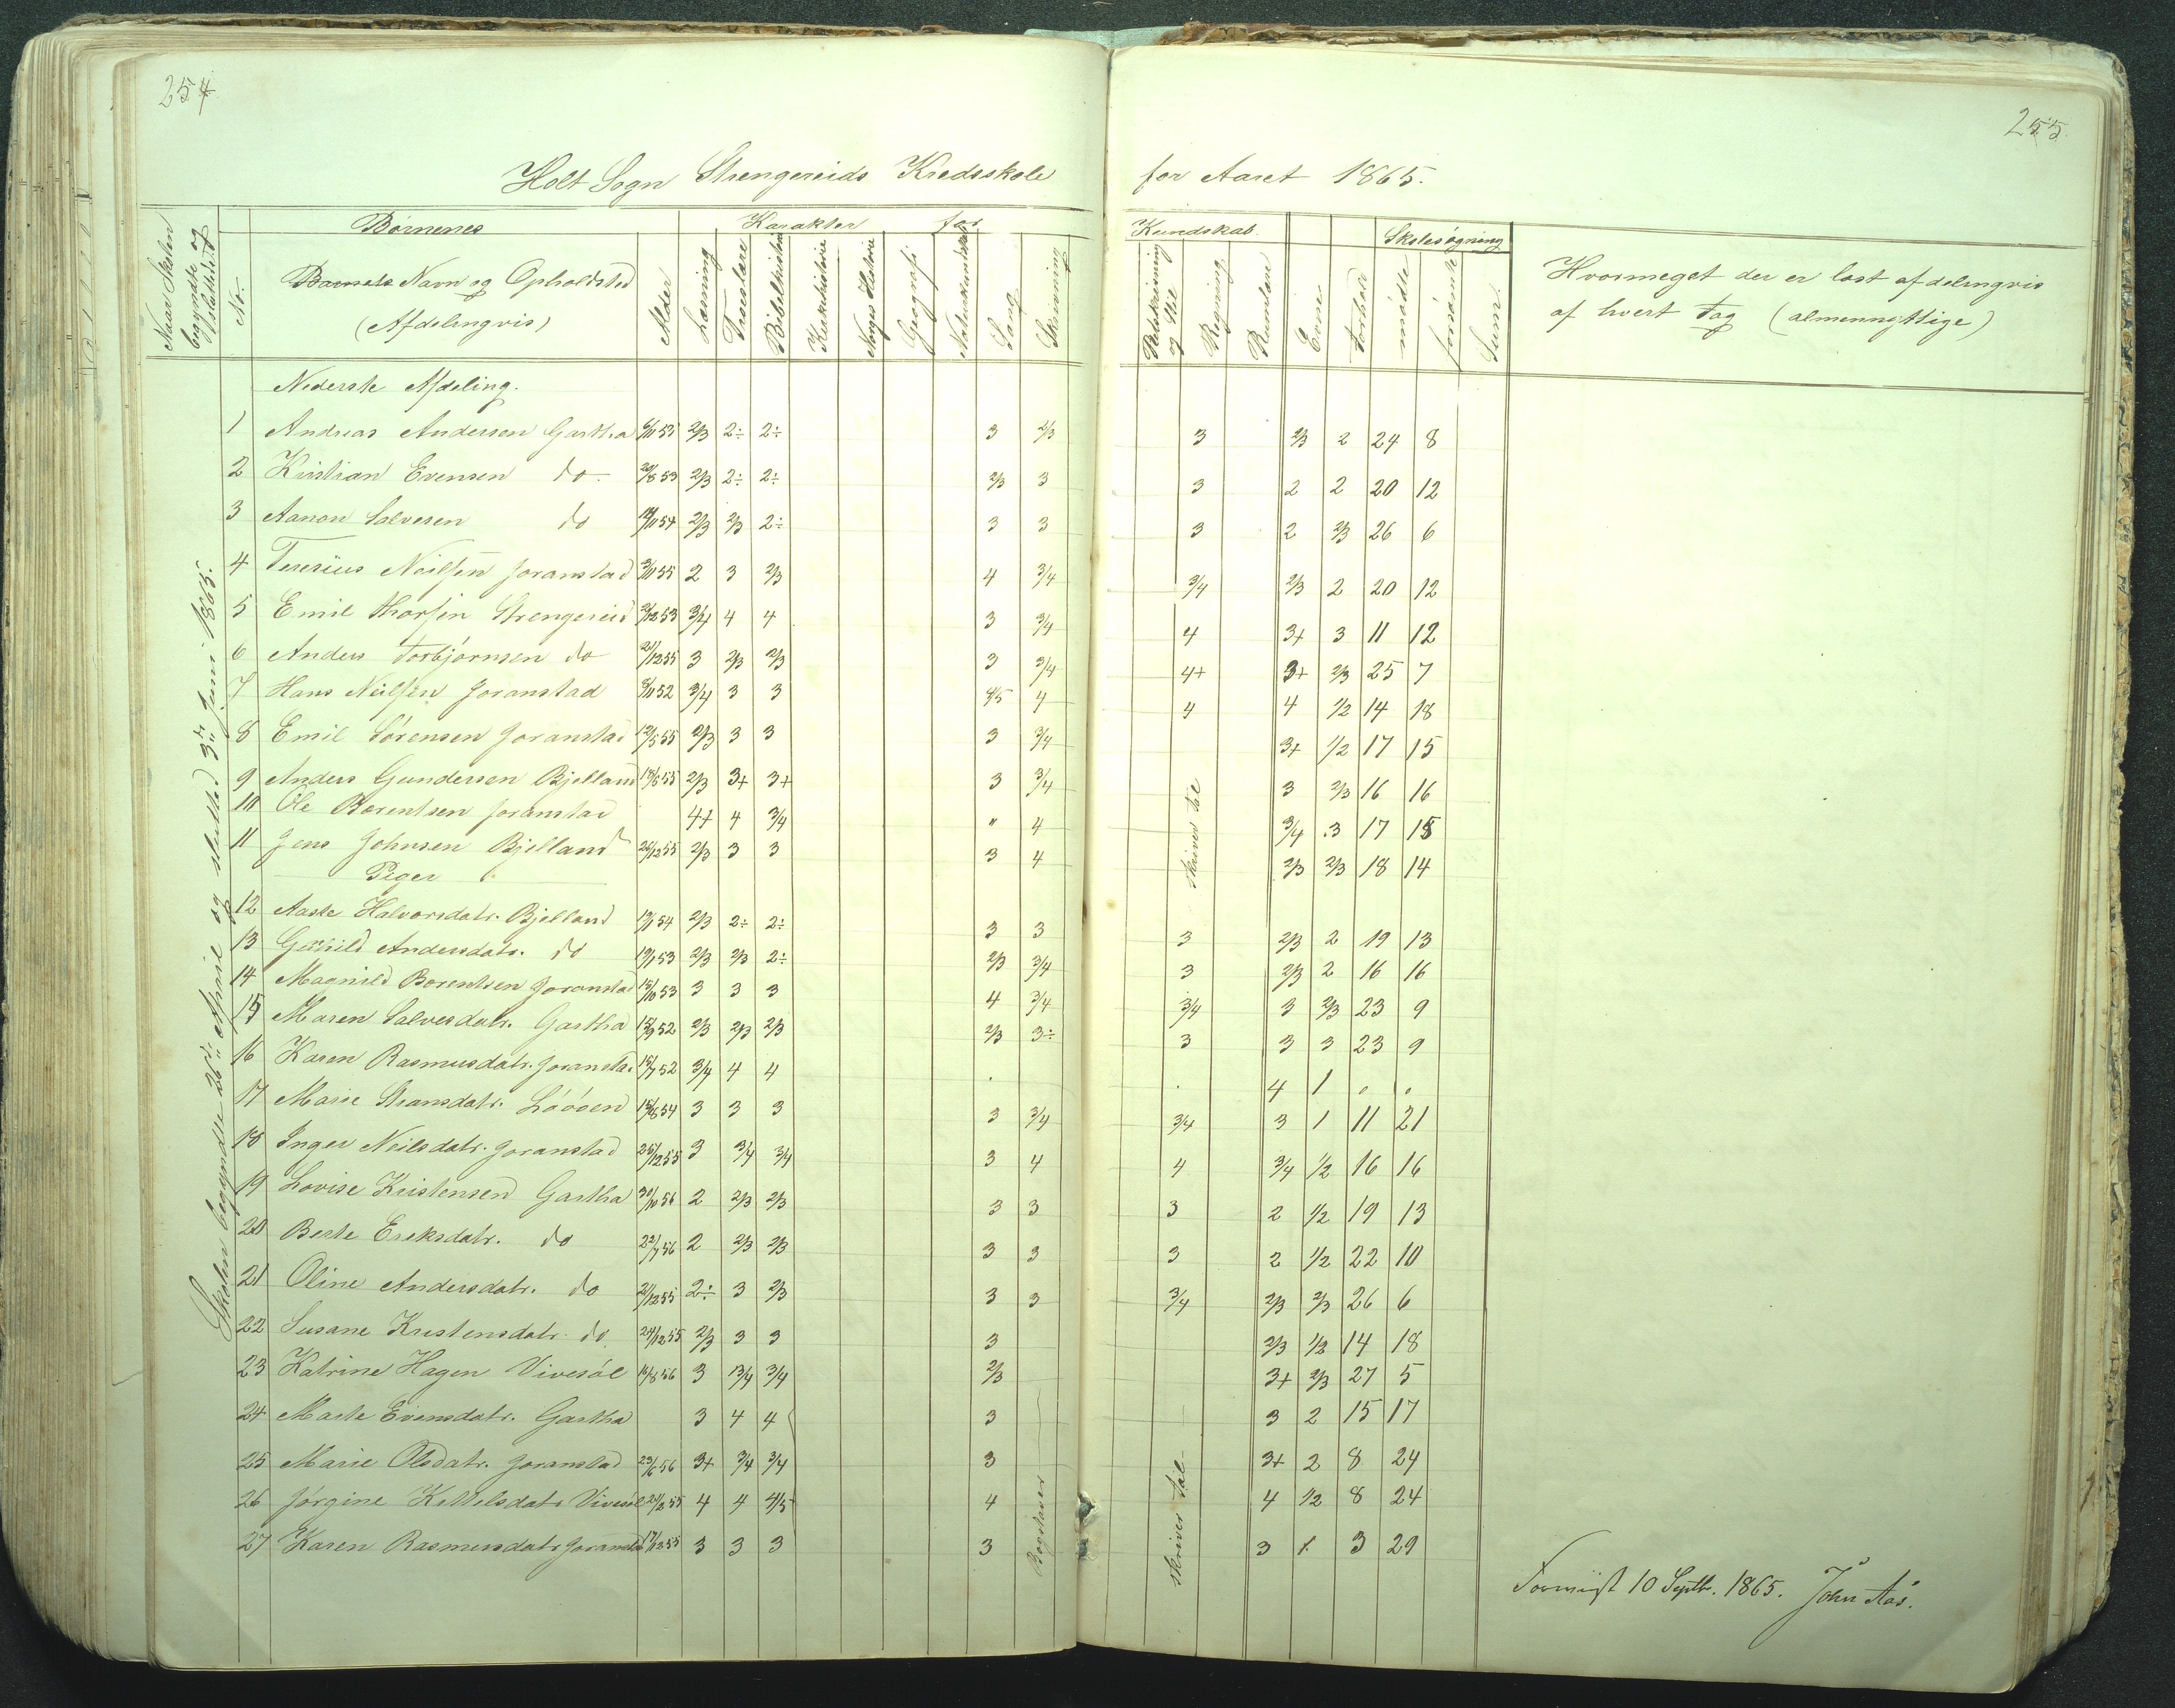 254
255.
Holt Sogn Strengereids Kredsskole for Aaret 1865.
Naar Skolen begyndte og sluttedes
No.
Børnenes
Barnets Navn og Opholdsted
(Afdelingvis)
Alder
Karakter for Kundskab.
Læsning
Troeslære
Bibelhistorie
Kirkehistorie
Norges Historie
Geografi
Naturkundskab
Sang
Skrivning
Retskrivning og Stil
Regning
Rumlære
Evner
Forhold
Skolesøgning
mødte
forsømte
Sum.
Hvormeget der er læst afdelingvis af hvert Fag (almennyttige)
Skolen begyndte 26de April og slutted 3die Juni 1865.
Nederste Afdeling.
1 Andreas Andersen Gartha 6/11 53 2/3 2÷ 2÷ 3 2/3 3 2/3 2 24 8
2 Kristian Evensen do 20/8 53 2/3 2÷ 2÷ 2/3 3 3 2 2 20 12
3 Aanon Salvesen do 14/11 54 2/3 2/3 2÷ 3 3 3 2 2/3 26 6
4 Teresius Neilsen Joranstad 3/11 55 2 3 2/3 4 3/4 3/4 2/3 2 20 12
5 Emil Thorsen Strengereid 2/12 53 3/4 4 4 3 3/4 4 3+ 3 11 12
6 Anders Torbjørnsen do 21/12 55 3 2/3 2/3 3 3/4 4+ 3+ 2/3 25 7
7 Hans Neilsen Joranstad 8/11 52 3/4 3 3 4/5 4 4 4 1/2 14 18
8 Emil Sørensen Joranstad 12/5 55 2/3 3 3 3 3/4 3+ 1/2 17 15
9 Anders Gundersen Bjelland 18/5 55 2/3 3+ 3+ 3 3/4 3 2/3 16 16
10 Ole Borentsen Joranstad 4+ 4 3/4 " 4 3/4 3 17 15
11 Jens Johnsen Bjelland 26/12 55 2/3 3 3 3 4 2/3 2/3 18 14
skriver Tal
Piger
12 Aaste Halvorsdatr. Bjelland 19/1 54 2/3 2÷ 2÷ 3 3 3 2/3 2 19 13
13 Gunild Andersdatr. do 19/1 53 2/3 2/3 2÷ 2/3 3/4 3 2/3 2 16 16
14 Magnild Borentsen Joranstad 15/10 53 3 3 3 4 3/4 3/4 3 2/3 23 9
15 Maren Salvesdatr. Gartha 15/9 52 2/3 2/3 2/3 2/3 3÷ 3 3 3 23 9
16 Karen Rasmusdatr. Joranstad 15/7 52 3/4 4 4 . . 4 1 . .
17 Marie Hansdatr. Løøsen 15/8 54 3 3 3 3 3/4 3/4 3 1 11 21
18 Inger Neilsdatr. Joranstad 25/12 55 3 3/4 3/4 3 4 4 3/4 1/2 16 16
19 Lovise Kristensen Gartha 30/10 56 2 2/3 2/3 3 3 3 2 1/2 19 13
20 Berte Ereksdatr. do 22/7 56 2 2/3 2/3 3 3 3 2 1/2 22 10
21 Oline Andersdatr. do 21/12 55 2÷ 3 2/3 3 3 3/4 2/3 2/3 26 6
22 Susane Kristensdatr. do 24/12 55 2/3 3 3 3 2/3 1/2 14 18
23 Katrine Hagen Vivesøl 16/8 56 3 3/4 3/4 2/3 3+ 2/3 27 5
24 Marte Evensdatr. Gartha 3 4 4 3 3 2 15 17
25 Marie Olsdatr. Joranstad 23/6 56 3+ 3/4 3/4 3 3+ 2 8 24
26 Jørgine Kittelsdatr Vivesøl 24/2 55 4 4 4/5 4 4 1/2 8 24
27 Karen Rasmusdatr Joranstad 17/12 55 3 3 3 3 3 1. 3 29
Bogstaver
skriver Tal
10 Septbr. 1865. John Aas.